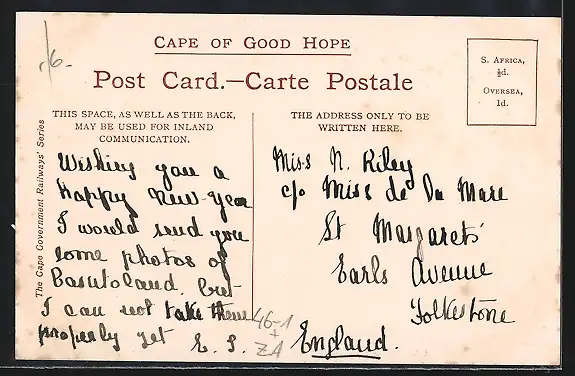 CAPE OF GOOD HOPE
Post Card.—Carte Postale
S. AFRICA,
½d.
OVERSEA,
1d.
THIS SPACE, AS WELL AS THE BACK,
MAY BE USED FOR INLAND
COMMUNICATION.
THE ADDRESS ONLY TO BE
WRITTEN HERE.
The Cape Government Railways' Series
Wishing you a
happy New Year
I would send you
some photos of
Basutoland. but
I can not take them
properly yet
E. S.
Miss N. Riley
c/o Miss de La Mare
St Margarets'
Earls Avenue
Folkestone
England.
46-1
+
ZA